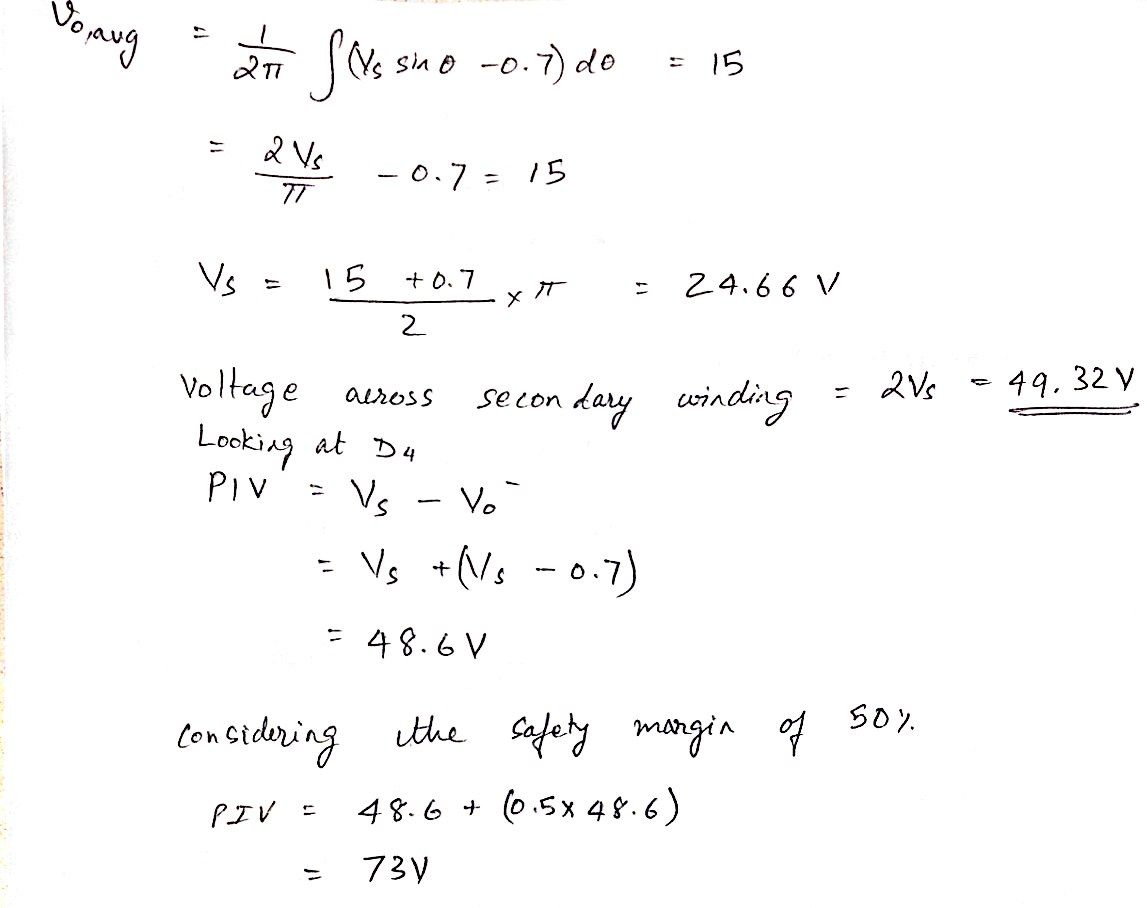 Vo,avg = 1/2π ∫(Vs sin θ - 0.7) dθ = 15
= 2Vs/π - 0.7 = 15
Vs = 15 + 0.7/2 × π = 24.66 V
Voltage across secondary winding = 2Vs = 49.32 V
Looking at D4
PIV = Vs - Vo⁻
= Vs + (Vs - 0.7)
= 48.6 V
Considering the safety margin of 50%
PIV = 48.6 + (0.5 × 48.6)
= 73V